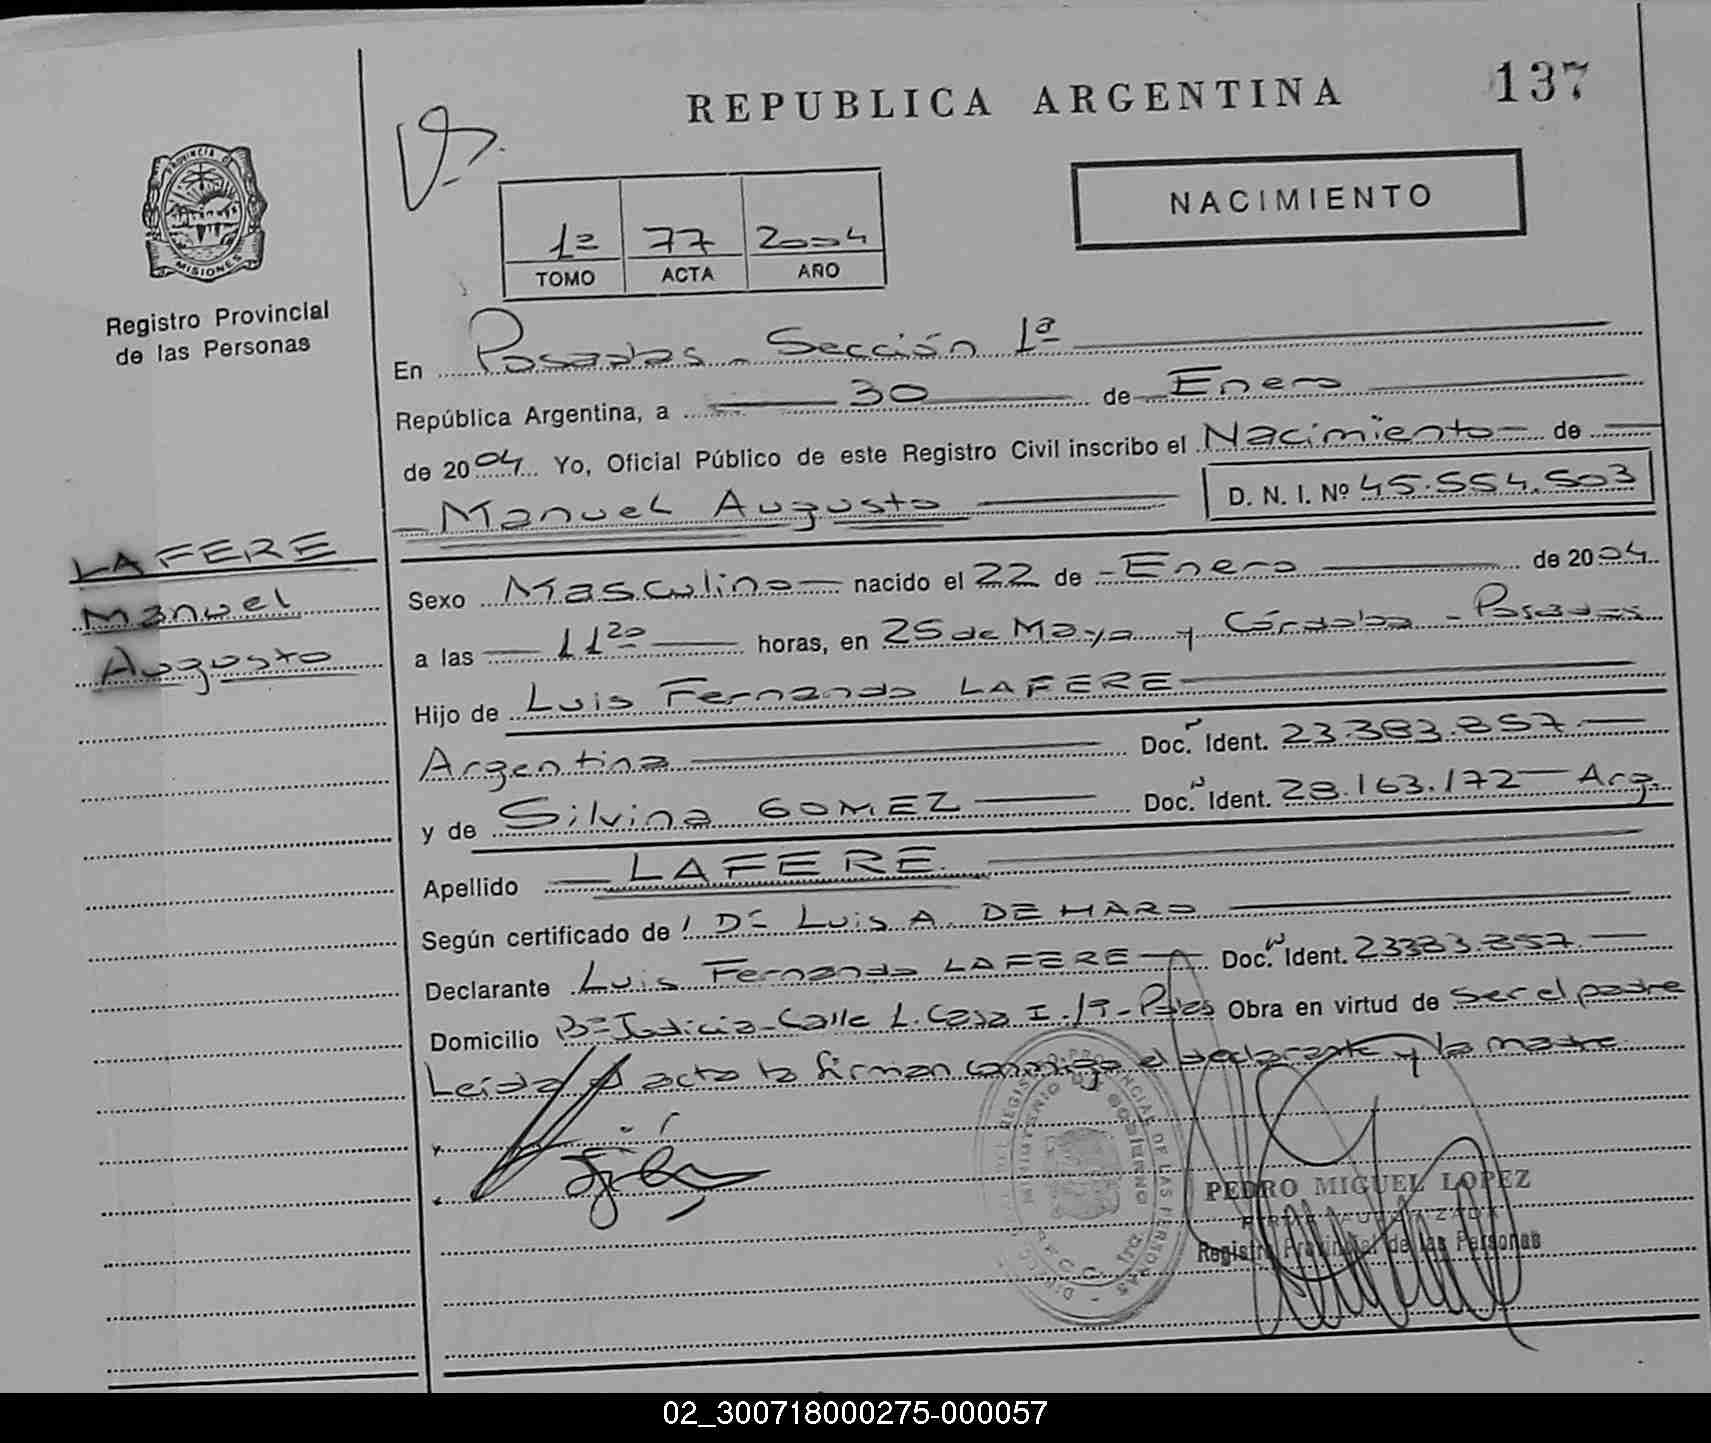 REPUBLICA ARGENTINA
137
PROVINCIA DE
MISIONES
Registro Provincial
de las Personas
NACIMIENTO
1º 77 2004
TOMO ACTA AÑO
En Posadas - Sección 1ª
República Argentina, a 30 de Enero
de 2004 Yo, Oficial Público de este Registro Civil inscribo el Nacimiento de
Manuel Augusto D. N. I. Nº 45.554.503
LAFERE
Manuel
Augusto
Sexo Masculino nacido el 22 de Enero de 2004
a las 11 20 horas, en 25 de Mayo y Córdoba - Posadas
Hijo de Luis Fernando LAFERE
Argentina Doc. Ident. 23.383.857
y de Silvina GOMEZ Doc. Ident. 28.163.172 Arg.
Apellido LAFERE
Según certificado de Dr Luis A. DE HARO
Declarante Luis Fernando LAFERE Doc. Ident. 23383.857
Domicilio Bº Judicial - Calle L. Casa I. - Pdas Obra en virtud de ser el padre
Leída el acta la firman conmigo el declarante y la madre
PEDRO MIGUEL LOPEZ
Registro Provincial de las Personas
02_300718000275-000057